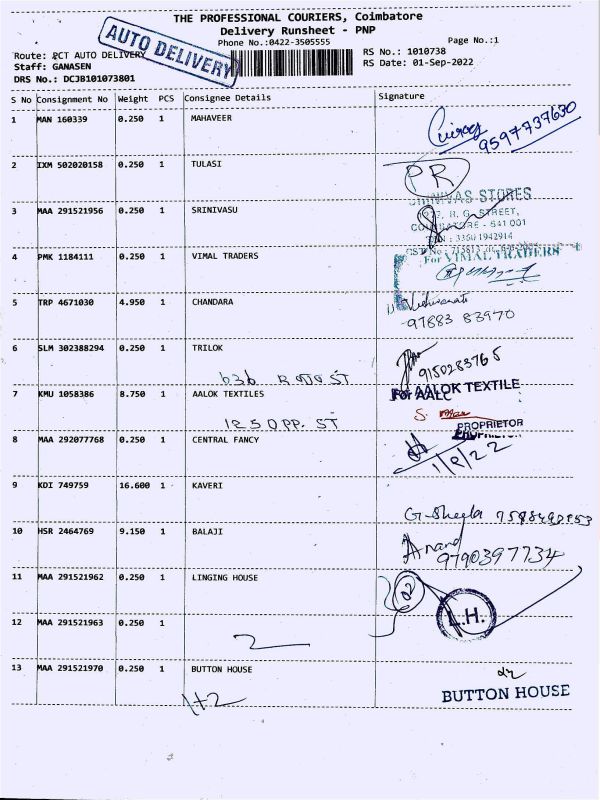 THE PROFESSIONAL COURIERS, Coimbatore
Delivery Runsheet - PNP
Phone No.:0422-3505555
Page No.:1
AUTO DELIVERY
Route: PCT AUTO DELIVERY
RS No.: 1010738
Staff: GANASEN
RS Date: 01-Sep-2022
DRS No.: DCJB101073801
S No Consignment No Weight PCS Consignee Details Signature
1 MAN 160339 0.250 1 MAHAVEER
9597737630
2 IXM 502020158 0.250 1 TULASI
PR
SRINIVAS STORES
STREET,
COIMBATORE - 641 001
3 MAA 291521956 0.250 1 SRINIVASU
4 PMK 1184111 0.250 1 VIMAL TRADERS
For VIMAL TRADERS
5 TRP 4671030 4.950 1 CHANDARA
97883 83970
6 SLM 302388294 0.250 1 TRILOK
9150283765
636 R ST
7 KMU 1058386 8.750 1 AALOK TEXTILES
For AALOK TEXTILE
PROPRIETOR
125 OPP. ST
8 MAA 292077768 0.250 1 CENTRAL FANCY
1/9/22
9 KDI 749759 16.600 1 KAVERI
G. Sheela
10 HSR 2464769 9.150 1 BALAJI
Anand
9790397734
11 MAA 291521962 0.250 1 LINGING HOUSE
02
L.H.
12 MAA 291521963 0.250 1
13 MAA 291521970 0.250 1 BUTTON HOUSE
BUTTON HOUSE
1+2